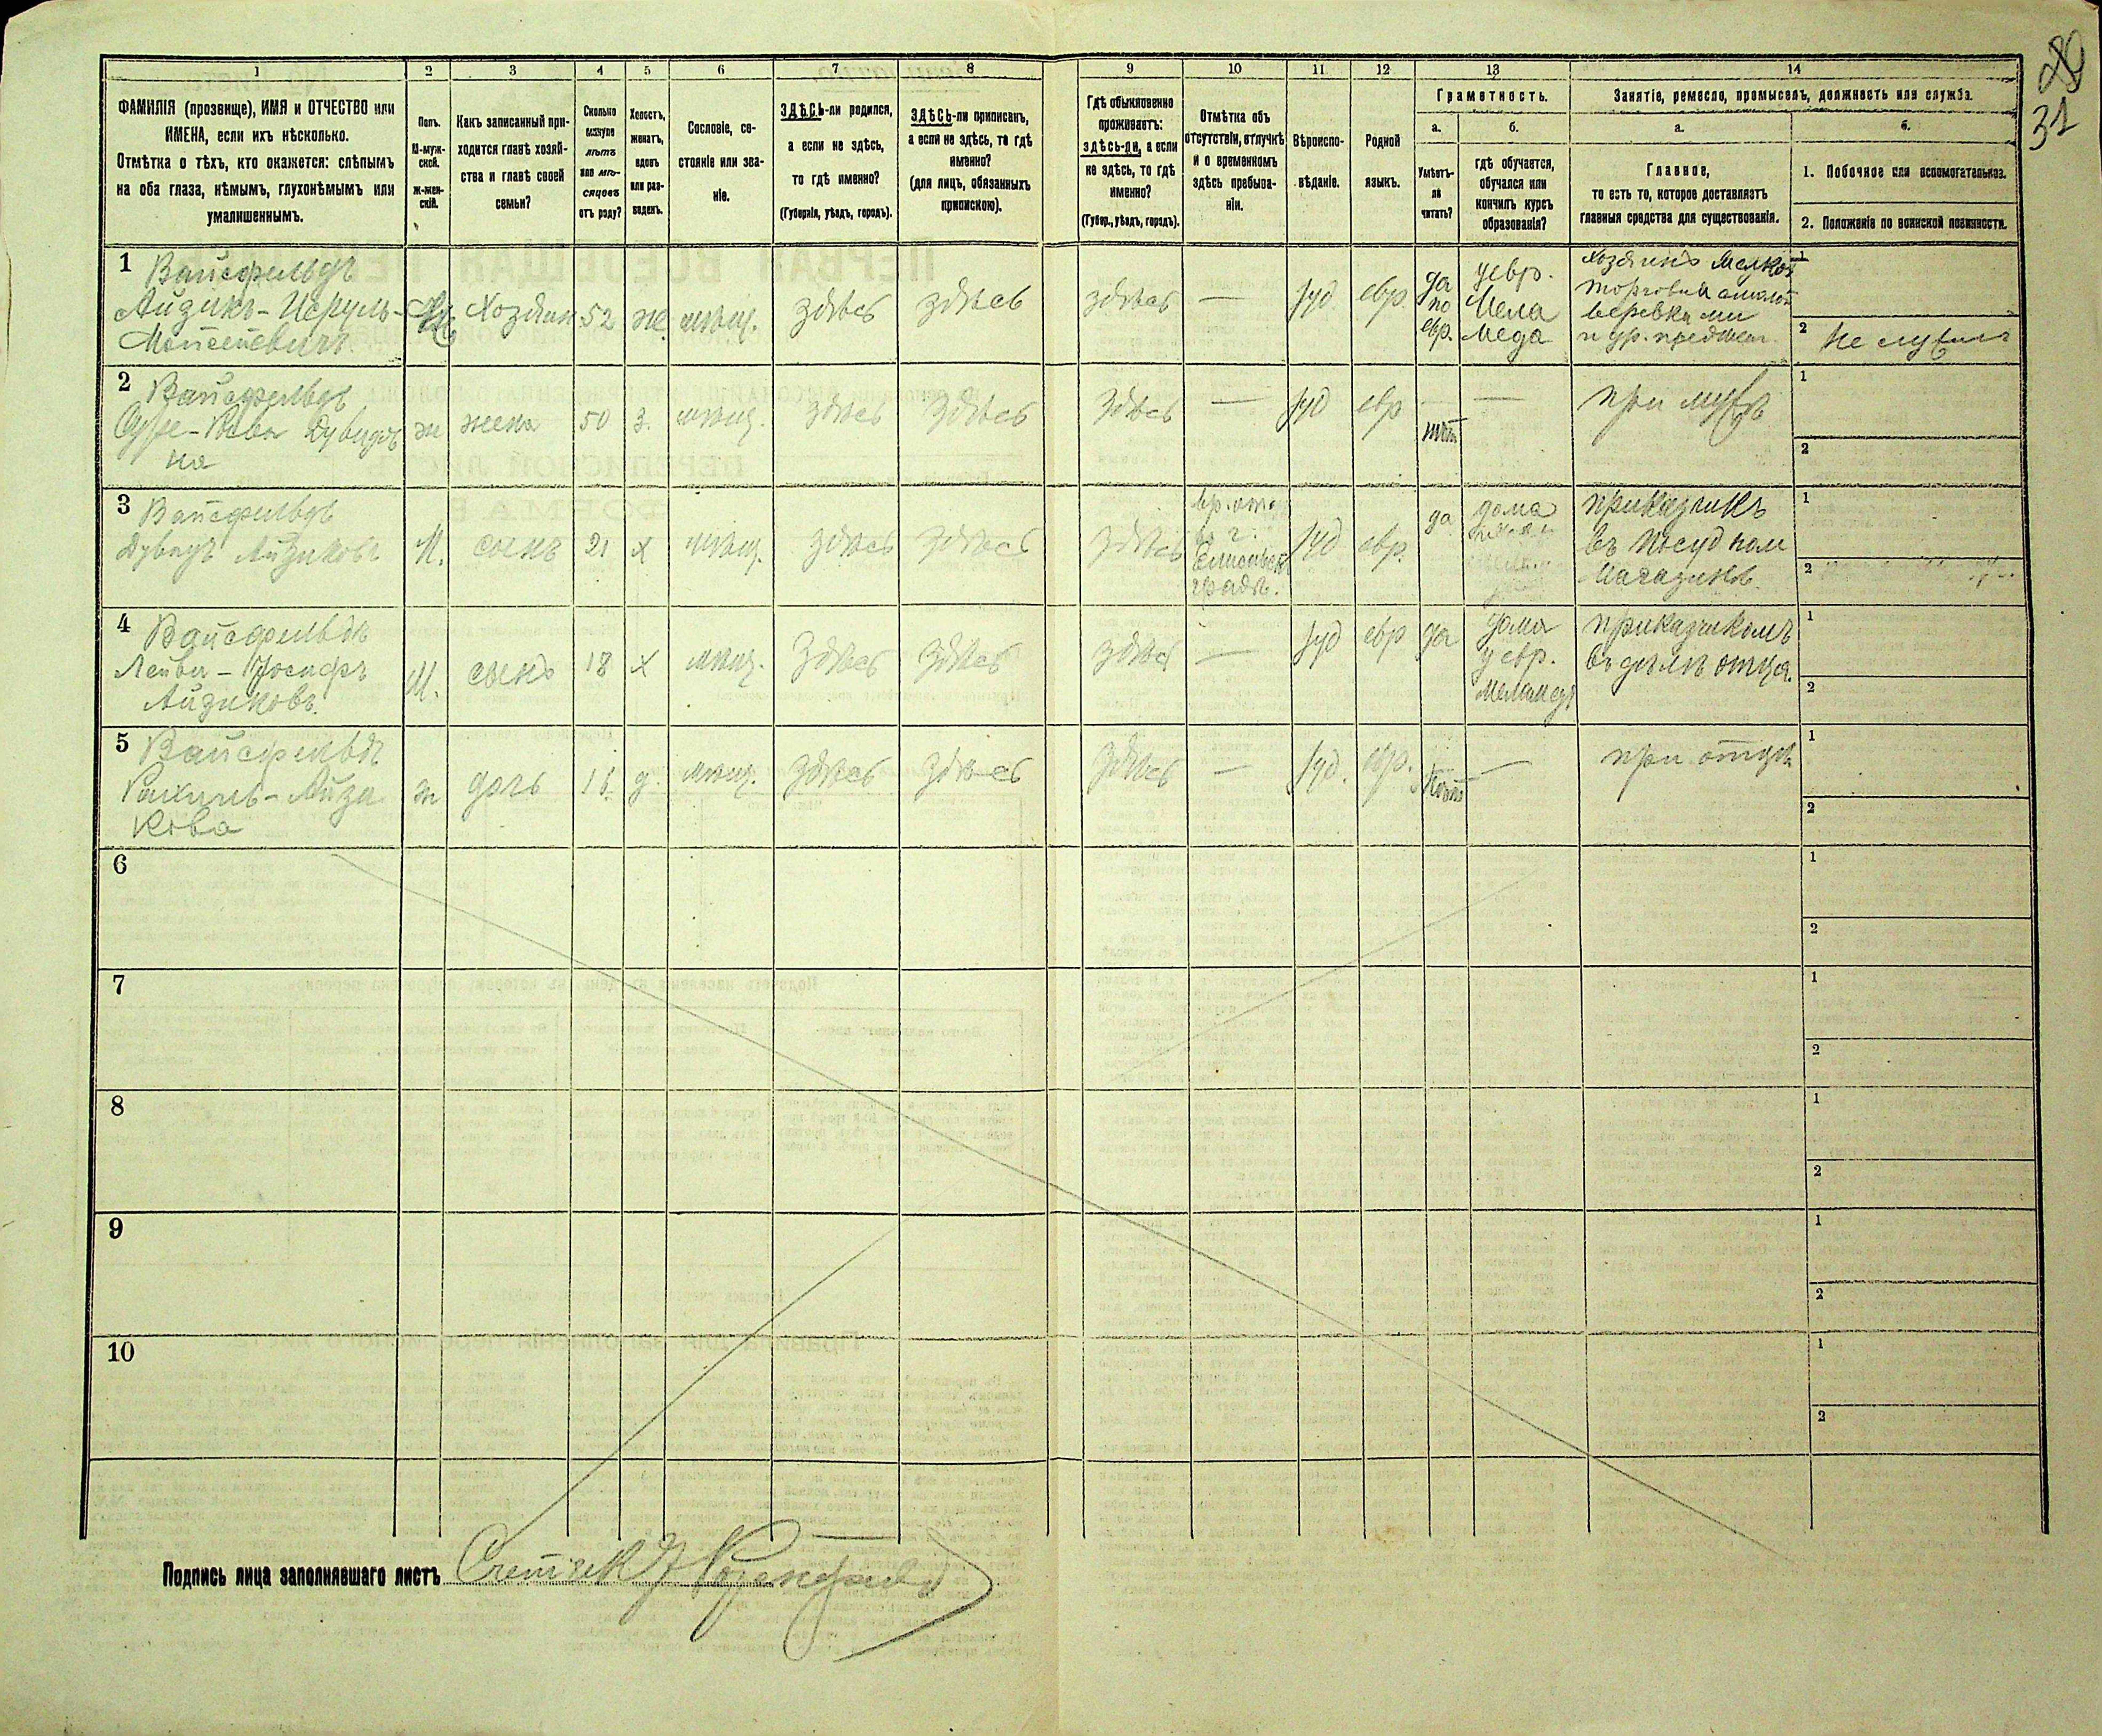 1 2 3 4 5 6 7 8 9 10 11 12 13 14
31
ФАМИЛІЯ (прозвище), ИМЯ и ОТЧЕСТВО или
ИМЕНА, если ихъ нѣсколько.
Отмѣтка о тѣхъ, кто окажется: слѣпымъ
на оба глаза, нѣмымъ, глухонѣмымъ или
умалишеннымъ.
Полъ.
М-муж-
ской.
ж-жен-
скій.
Какъ записанный при-
ходится главѣ хозяй-
ства и главѣ своей
семьи?
Сколько
минуло
лѣтъ
или мѣ-
сяцевъ
отъ роду?
Холостъ,
женатъ,
вдовъ
или раз-
веденъ.
Сословіе, со-
стояніе или зва-
ніе.
ЗДѢСЬ-ли родился,
а если не здѣсь,
то гдѣ именно?
(Губернія, уѣздъ, городъ).
ЗДѢСЬ-ли приписанъ,
а если не здѣсь, то гдѣ
именно?
(для лицъ, обязанныхъ
припискою).
Гдѣ обыкновенно
проживаетъ:
здѣсь-ли, а если
не здѣсь, то гдѣ
именно?
(Губер., уѣздъ, городъ).
Отмѣтка объ
отсутствіи, отлучкѣ
и о временномъ
здѣсь пребыва-
ніи.
Вѣроиспо-
вѣданіе.
Родной
языкъ.
Грамотность.
а.
Умѣетъ-
ли
читать?
б.
гдѣ обучается,
обучался или
кончилъ курсъ
образованія?
Занятіе, ремесло, промыселъ, должность или служба.
а.
Главное,
то есть то, которое доставляетъ
главныя средства для существованія.
б.
1. Побочное или вспомогательное.
2. Положеніе по воинской повинности.
1 Вайсфельдъ
Айзикъ-Исруль-
Мойсеевичъ
Хозяинъ
52
же
мѣщ.
здѣсь
здѣсь
здѣсь
—
Іуд
евр.
да
по
евр.
у евр.
Мела
меда
Хозяинъ Мелкой
торговли смолой
веревками
и др. предмет.
1
2 Не служил
2 Вайсфельдъ
Дувидов
на
ж
жена
50
з.
мѣщ.
здѣсь
здѣсь
здѣсь
—
Іуд
евр
нѣт
—
при мужѣ
1
2
3 Вайсфельдъ
Дувидъ Айзиковъ
М.
сынъ
21
х
мѣщ.
здѣсь
здѣсь
здѣсь
вр. отс
въ г.
Елисавет
градѣ.
Іуд
евр.
да
дома
приказчикъ
въ посудном
магазинѣ
1
2
4 Вайсфельдъ
Лейви-Іосифъ
Айзиковъ.
М.
сынъ
18
х
мѣщ.
здѣсь
здѣсь
здѣсь
—
Іуд
евр
да
дома
у евр.
Меламеда
приказчикомъ
въ дѣлѣ отца.
1
2
5 Вайсфельдъ
Рахиль-Айзи
кова
ж
дочь
д.
мѣщ.
здѣсь
здѣсь
здѣсь
—
Іуд.
евр.
нѣт
—
при отцѣ
1
2
6
1
2
7
1
2
8
1
2
9
1
2
10
1
2
Подпись лица заполнявшаго листъ Счетчик